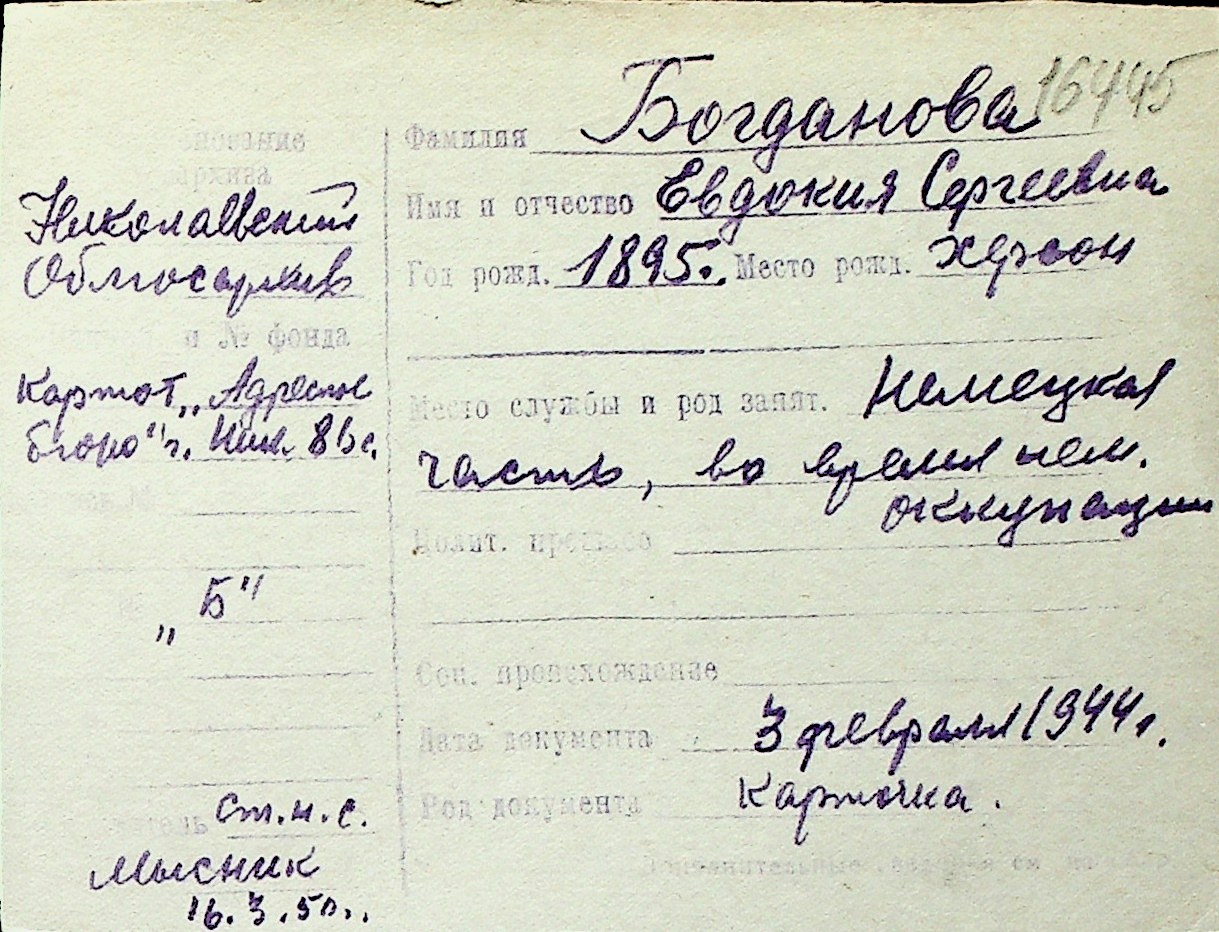 16445
Фамилия Богданова
Имя и отчество Евдокия Сергеевна
Год рожд. 1895. Место рожд. Херсон
Место службы и род занят. Немецкая
часть, во время нем.
оккупации
Полит. прошлое
Соц. происхождение
Дата документа 3 февраля 1944 г.
Род документа Карточка.
Дополнительные сведения см
архива
Николаевский
Облгосархив
и № фонда
Картот. „Адресное
бюро" г. Ник.
„Б"
ст. н. с.
Мысник
16.3.50.